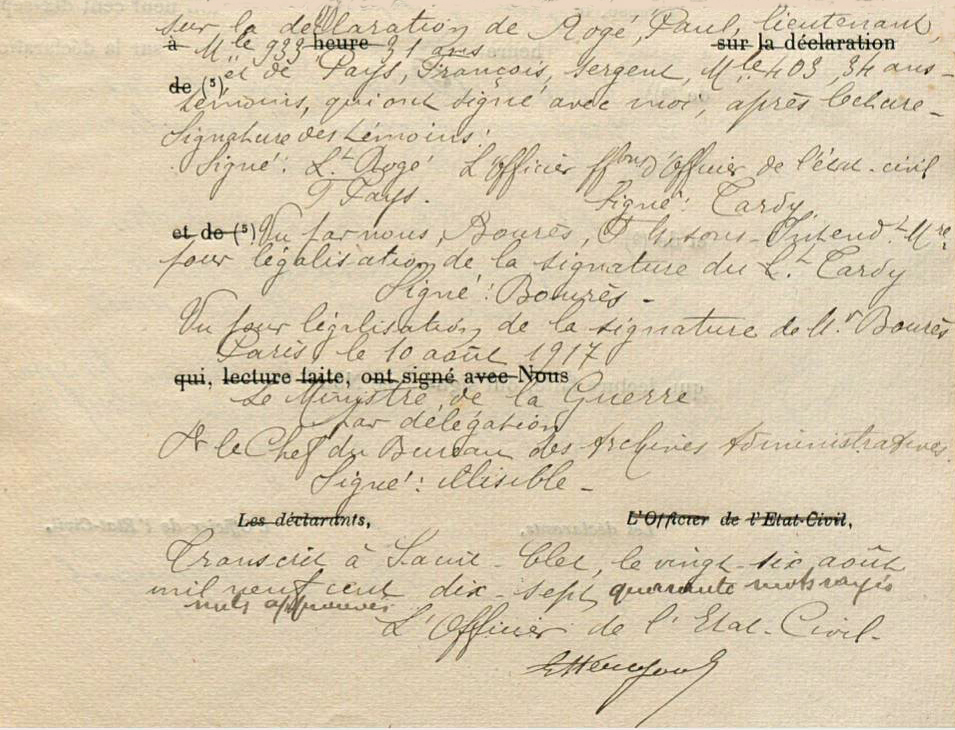 sur la déclaration de Rogé, Paul, lieutenant,
à Mle 933 heure 31 ans sur la déclaration
de (5) et de Pays, François, sergent, Mle 403, 34 ans -
témoins, qui ont signé avec moi, après lecture -
Signature des témoins :
Signé : Lt Rogé L'Officier ffons d'Officier de l'état-civil
Pays. Signé : Tardy,
et de (5) Vu par nous, Bourès, sous-Intendt Mre
pour légalisation de la signature du Lt Tardy
Signé : Bourès -
Vu pour légalisation de la signature de Mr Bourès
Paris, le 10 août 1917
qui, lecture faite, ont signé avec Nous
Le Ministre de la Guerre
par délégation
Pr le Chef du Bureau des Archives Administratives.
Signé : Illisible -
Les déclarants, L'Officier de l'Etat-Civil,
Transcrit à Saint-, le vingt-six août
mil neuf cent dix-sept quarante mots rayés
mots approuvés
L'Officier de l'Etat-Civil-